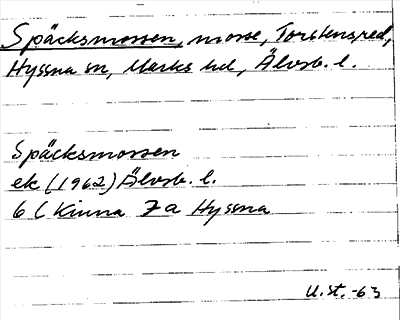 Späcksmossen, mosse, Torstensred,
Hyssna sn, Marks hd, Älvsb. l.
Späcksmossen
ek (1962) Älvsb. l.
6 C Kinna 7a Hyssna
U.st.-63